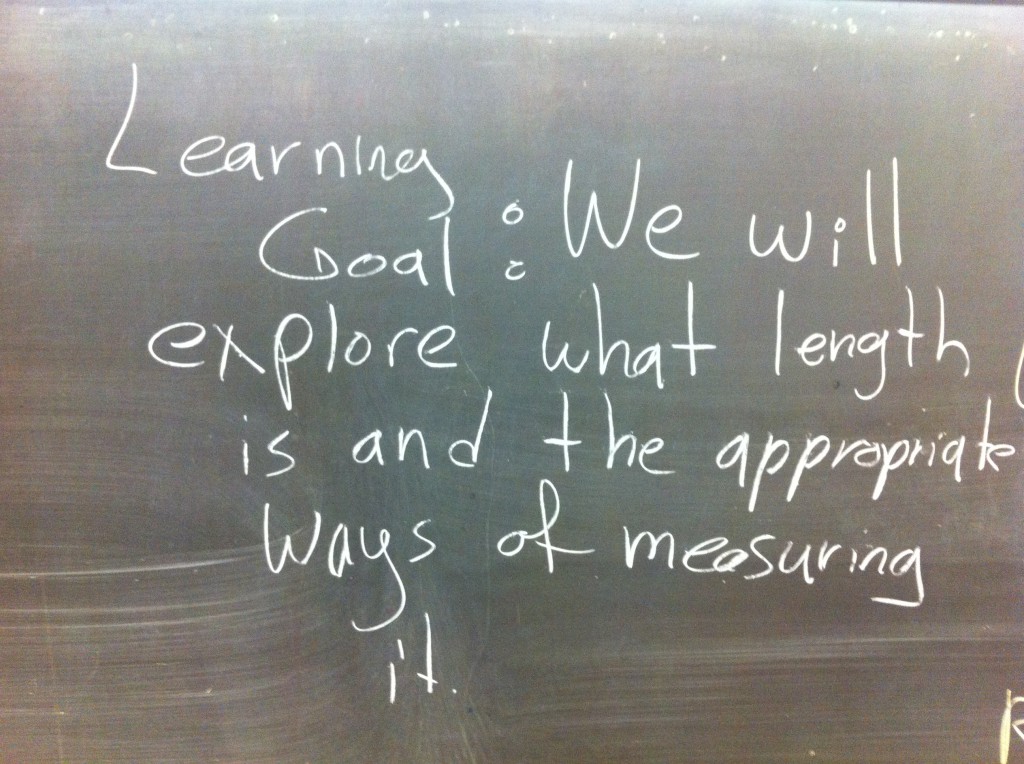 Learning
Goal: We will
explore what length
is and the appropriate
ways of measuring
it.